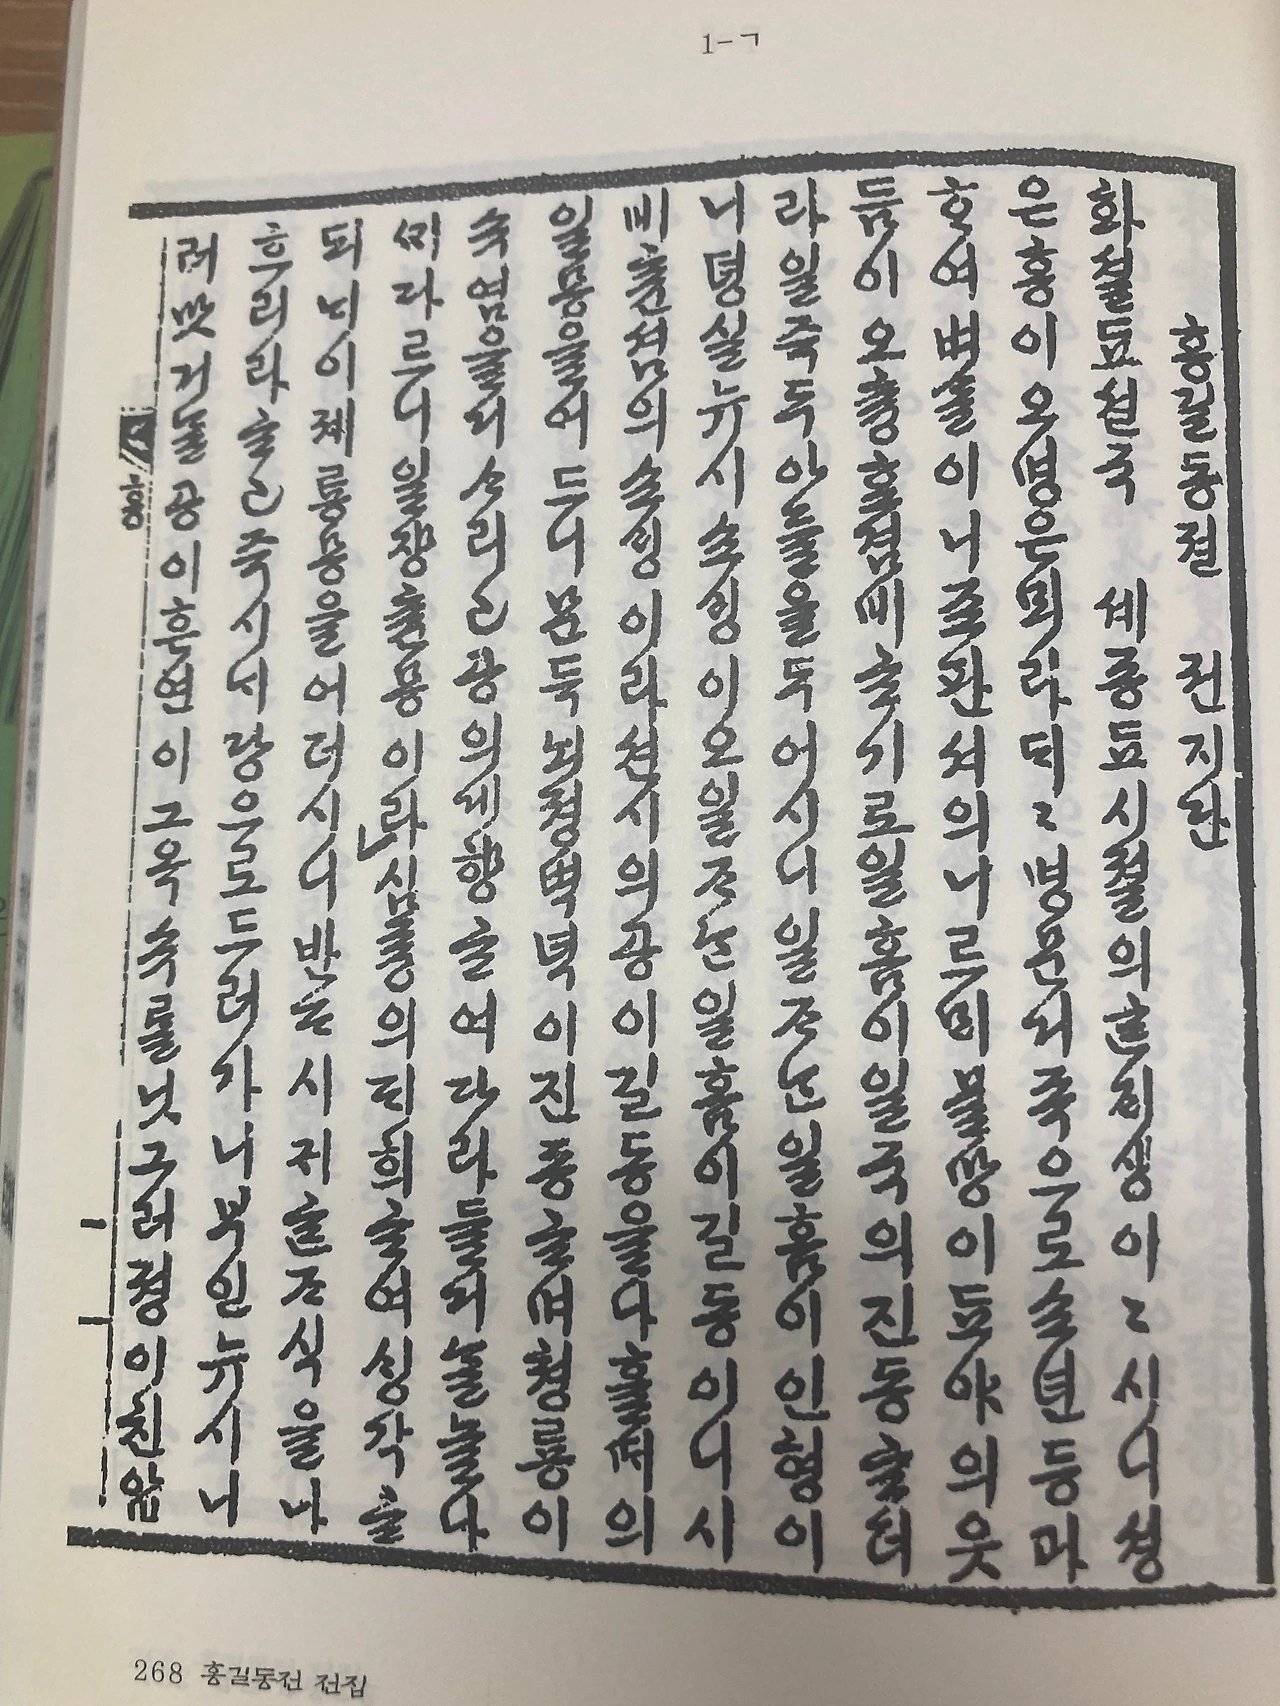 1-ㄱ
홍길동젼 권지단
화셜됴션국 셰종됴시졀의ᄒᆞᆫᄌᆡ샹이〻시니셩
은홍이오명은뫼라ᄃᆡ〻명문거족으로쇼년등과
ᄒᆞ여벼ᄉᆞᆯ이니조판셔의니르ᄆᆡ물망이됴야의읏
듬이오츙효겸비ᄒᆞ기로일홈이일국의진동ᄒᆞ더
라일즉두아들을두어시니일ᄌᆞᄂᆞᆫ일홈이인형이
니뎡실뉴시쇼ᄉᆡᆼ이오일ᄌᆞᄂᆞᆫ일홈이길동이니시
비츈셤의쇼ᄉᆡᆼ이라션시의공이길동을나흘ᄯᆡ의
일몽을어드니문득뇌졍벽녁이진동ᄒᆞ며쳥룡이
슈염을거ᄉᆞ리고공의게향ᄒᆞ여다라들거ᄂᆞᆯ놀나
ᄭᆡ다르니일쟝츈몽이라심즁의ᄃᆡ희ᄒᆞ여ᄉᆡᆼ각ᄒᆞ
되ᄂᆡ이졔룡몽을어더시니반ᄃᆞ시귀ᄒᆞᆫᄌᆞ식을나
흐리라ᄒᆞ고즉시ᄂᆡ당으로드러가니부인뉴시니
러맛거ᄂᆞᆯ공이흔연이그옥슈를닛그러졍이친압
홍
268 홍길동전 전집